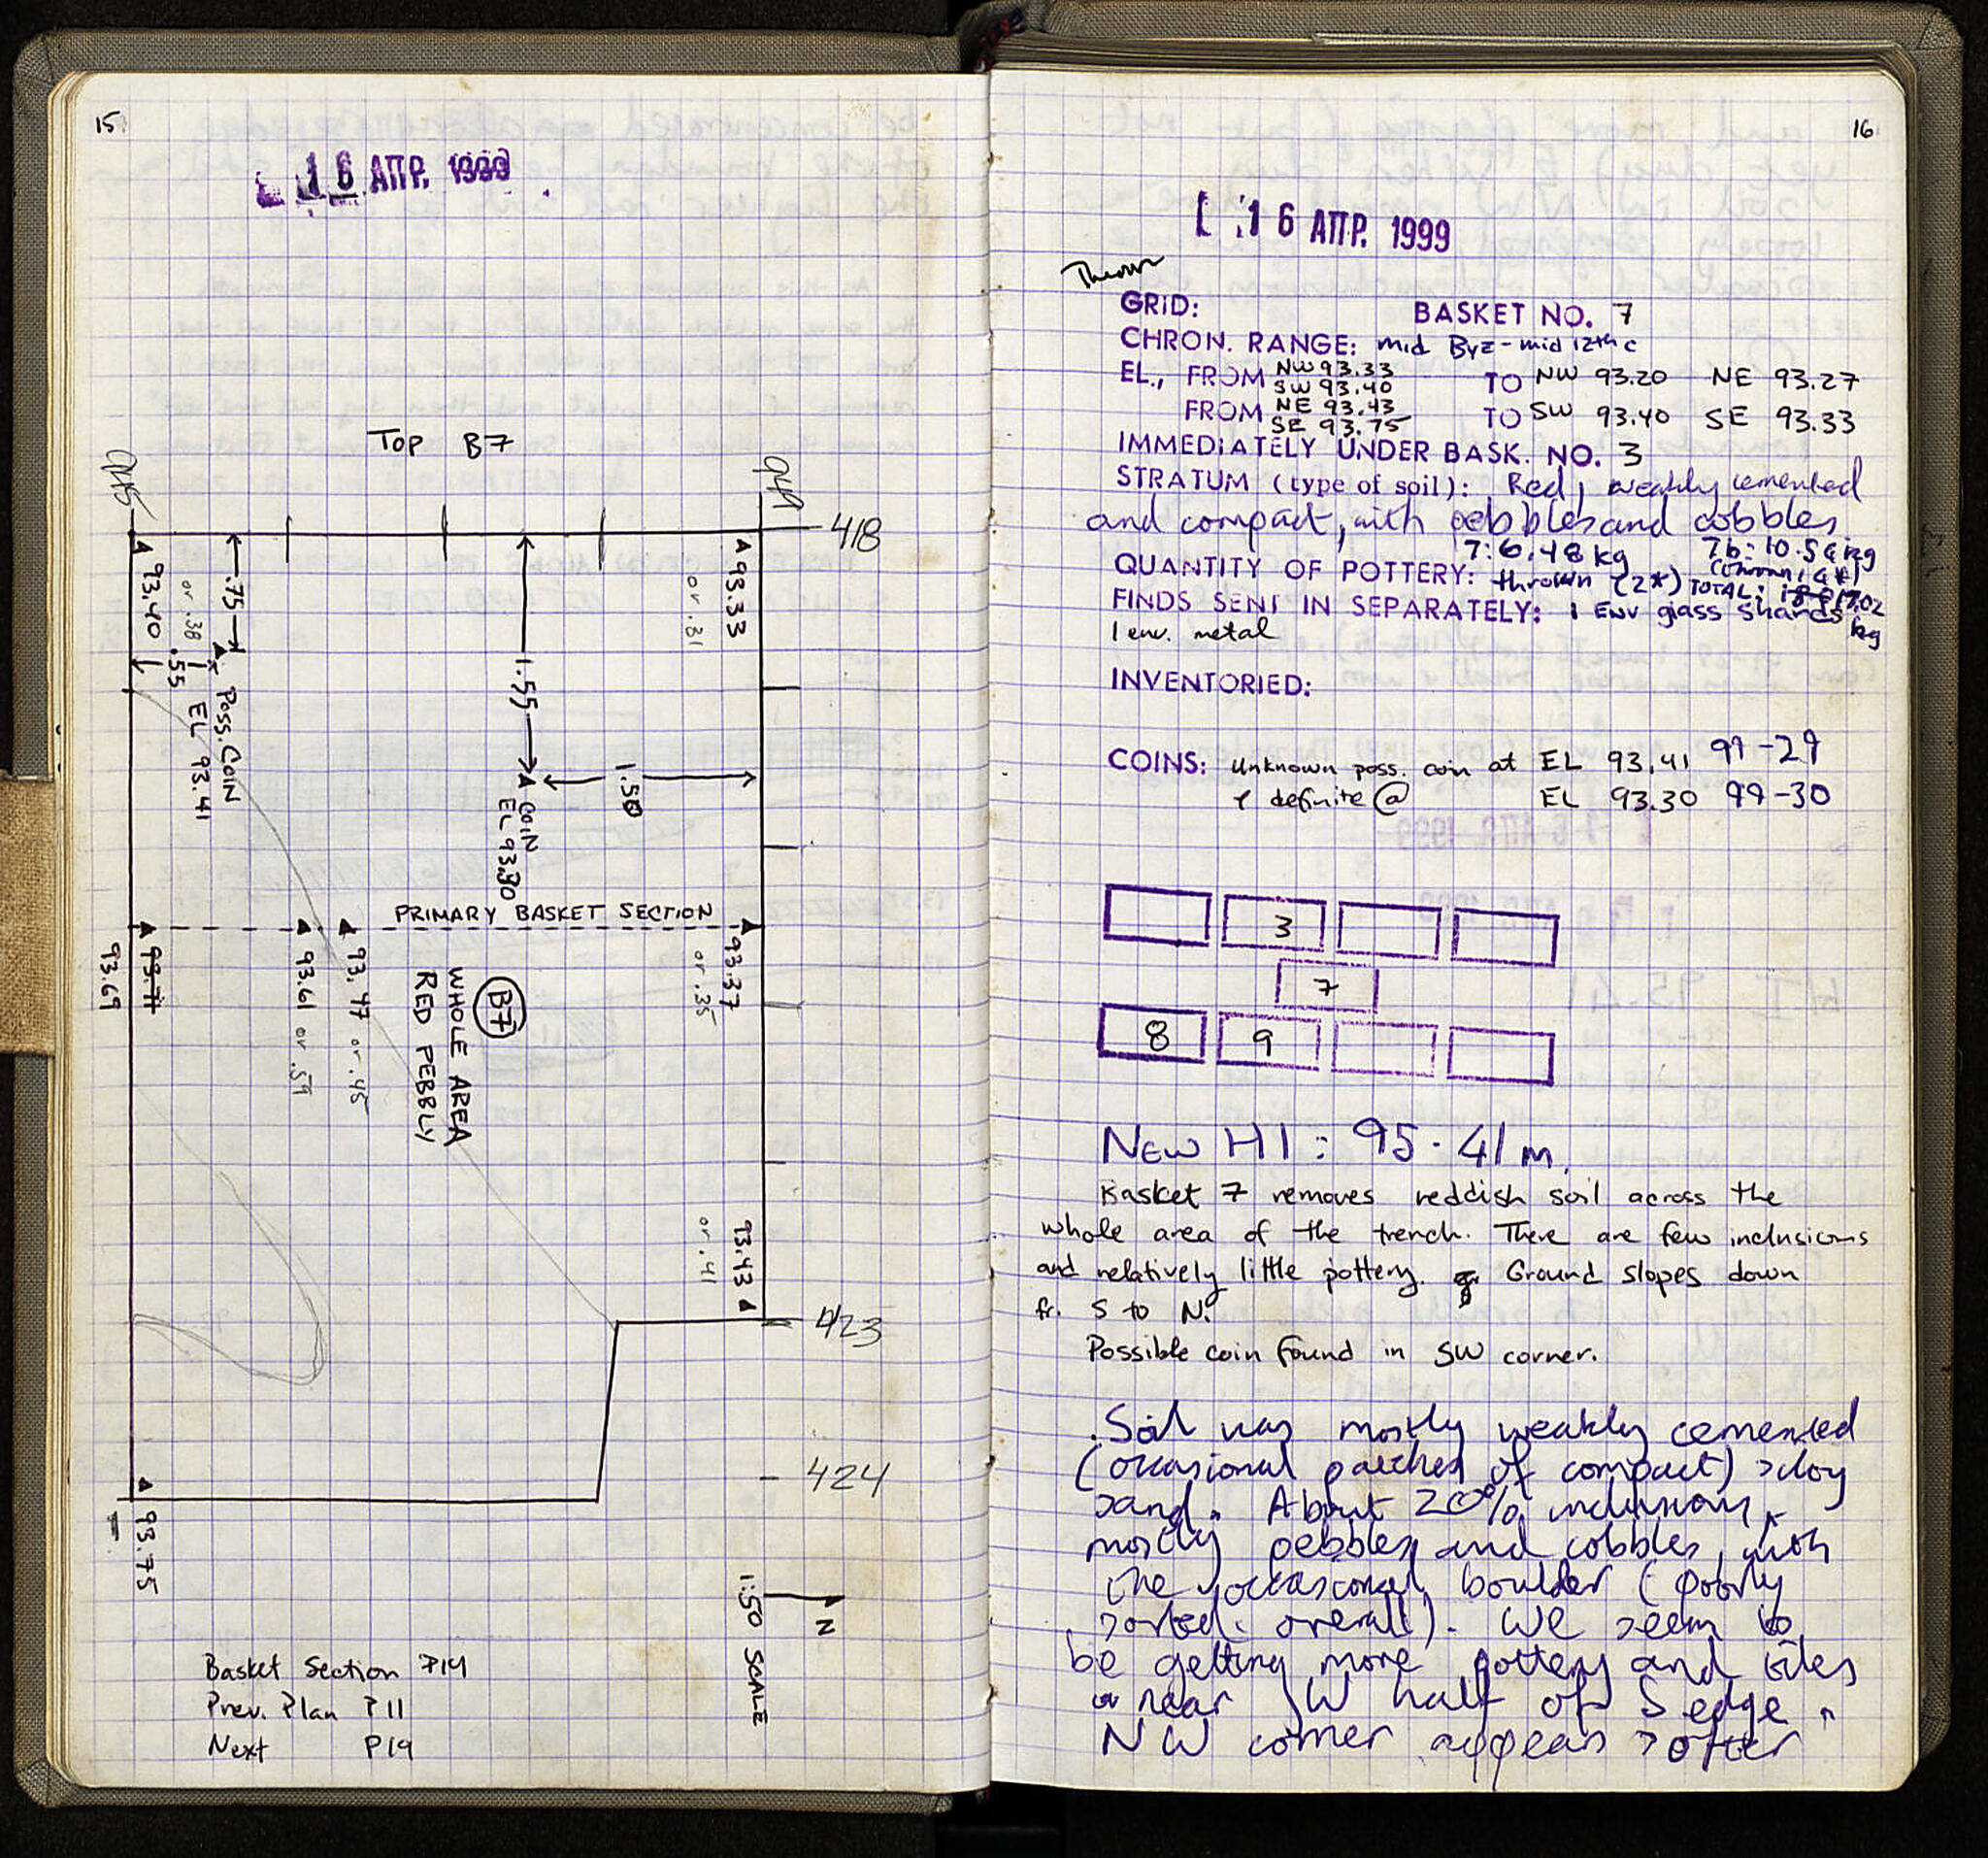 15
16 ΑΠΡ. 1999
TOP B7
418
93.40
or .38
.75
.55
Poss. COIN
EL 93.41
1.55
COIN
EL 93.30
1.50
93.33
or .31
PRIMARY BASKET SECTION
93.71
93.69
93.61 or .59
93.47 or .45
93.37
or .35
B7
WHOLE AREA
RED PEBBLY
93.43
or .41
423
424
93.75
N
1:50 SCALE
Basket Section P14
Prev. Plan P11
Next P19
16
16 ΑΠΡ. 1999
Thrown
GRID: BASKET NO. 7
CHRON. RANGE: mid Byz - mid 12th c
EL., FROM NW 93.33 TO NW 93.20 NE 93.27
SW 93.40
FROM NE 93.43 TO SW 93.40 SE 93.33
SE 93.75
IMMEDIATELY UNDER BASK. NO. 3
STRATUM (type of soil): Red, weakly cemented
and compact, with pebbles and cobbles
7: 6.48 kg 7b: 10.54 kg
QUANTITY OF POTTERY: thrown (2*) (thrown, 4*) TOTAL: 17.02
FINDS SENT IN SEPARATELY: 1 Env glass shards kg
1 env. metal
INVENTORIED:
COINS: Unknown poss. coin at EL 93.41 99-29
1 definite @ EL 93.30 99-30
3
7
8 9
NEW HI: 95.41 m.
Basket 7 removes reddish soil across the
whole area of the trench. There are few inclusions
and relatively little pottery. Ground slopes down
fr. S to N.
Possible coin found in SW corner.
Soil was mostly weakly cemented
(occasional patches of compact) > cloy
sand. About 20% inclusions,
mostly pebbles and cobbles, with
the occasional boulder (poorly
sorted overall). We seem to
be getting more pottery and tiles
near W half of S edge.
NW corner appears softer